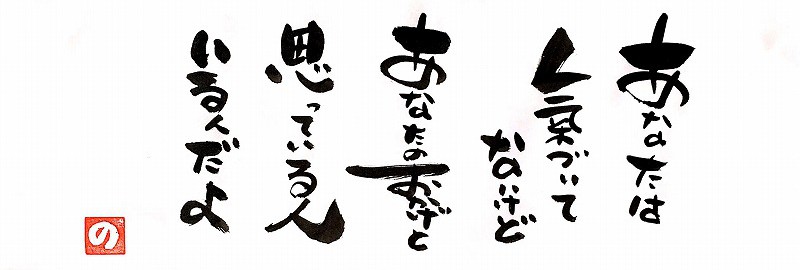 あなたは
気づいて
ないけど
あなたのおかげと
思っている人
いるんだよ
の